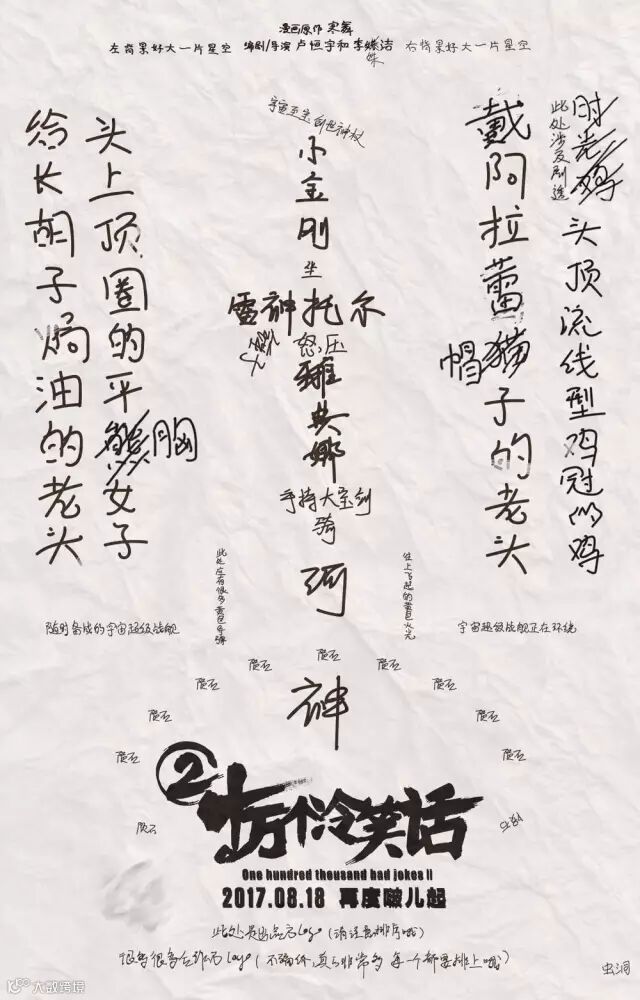 漫画原作 寒舞
左背景好大一片星空 编剧/导演 卢恒宇和李姝洁 右背景好大一片星空
姝
宇宙至宝创世神杖
小金刚
坐
雷神托尔
怒压
雅典娜
手持大宝剑
骑
河
神
给长胡子焗油的老头
头上顶圈的平胸女子
戴阿拉蕾猫帽子的老头
时光鸡
此处涉及剧透
头顶流线型鸡冠的鸡
此处应有很多黄色导弹
往上飞起的黄色火光
随时备战的宇宙超级战舰
宇宙超级战舰正在环绕
陨石
陨石
陨石
陨石
陨石
陨石
陨石
陨石
陨石
陨石
2
十万个冷笑话
One hundred thousand bad jokes II
2017.08.18 再度啵儿起
此处是出品方logo(请注意排序哦)
很多很多合作方logo(不确保,真的非常多 每一个都要排上哦)
虫洞
大数跨境